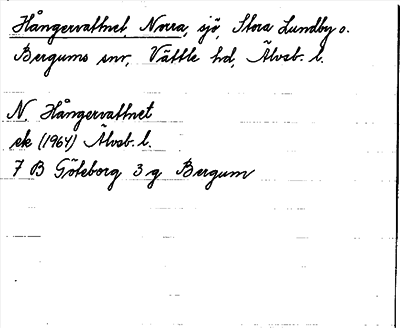 Hångervattnet Norra, sjö, Stora Lundby o.
Bergums snr, Vättle hd, Älvsb. l.
N. Hångervattnet
ek (1964) Älvsb. l.
7 B Göteborg 3 g Bergum